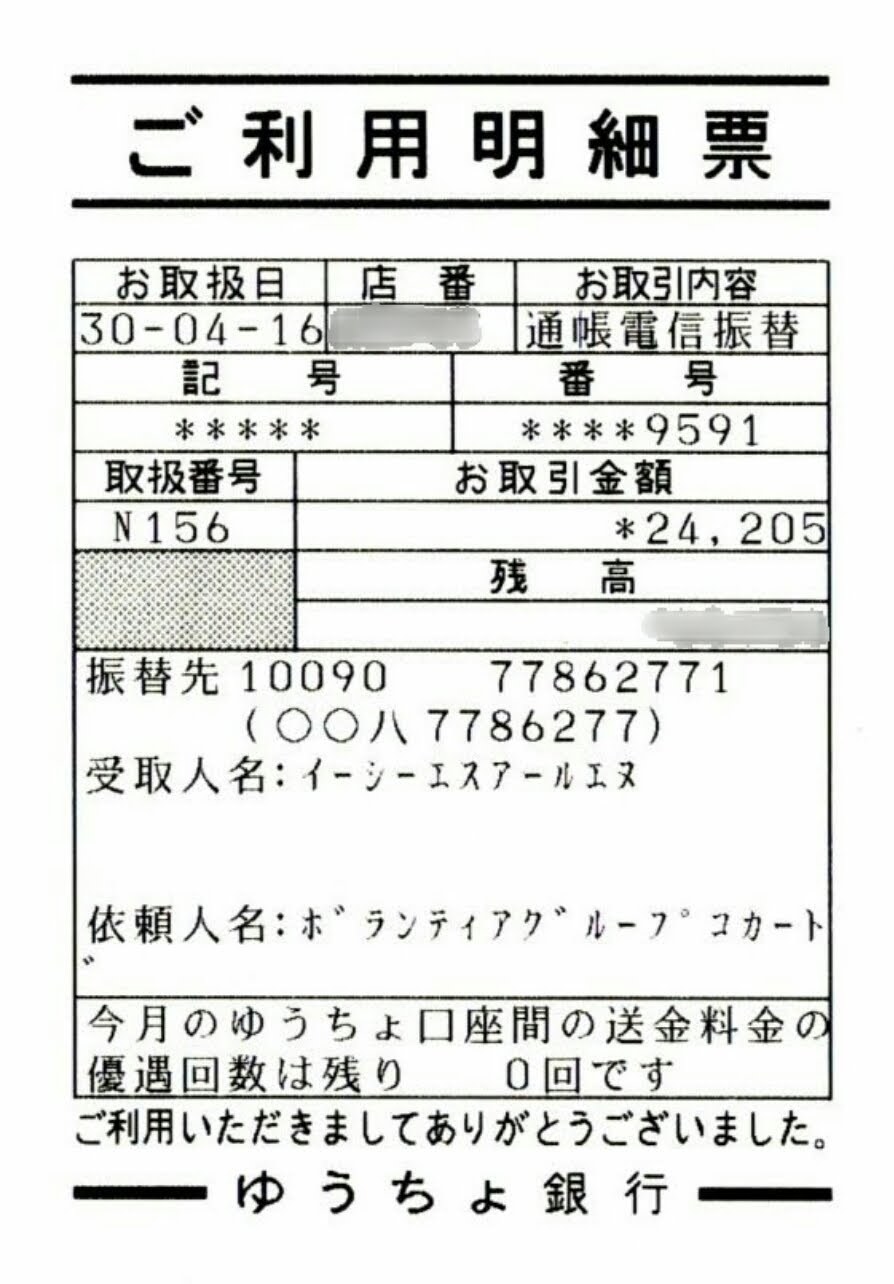 ご利用明細票
お取扱日 店番 お取引内容
30-04-16 通帳電信振替
記号 番号
***** ****9591
取扱番号 お取引金額
N156 *24,205
残高
振替先 10090 77862771
(〇〇八7786277)
受取人名:イーシーエスアールエヌ
依頼人名:ボランティアグループコカート
゛
今月のゆうちょ口座間の送金料金の
優遇回数は残り 0回です
ご利用いただきましてありがとうございました。
ゆうちょ銀行